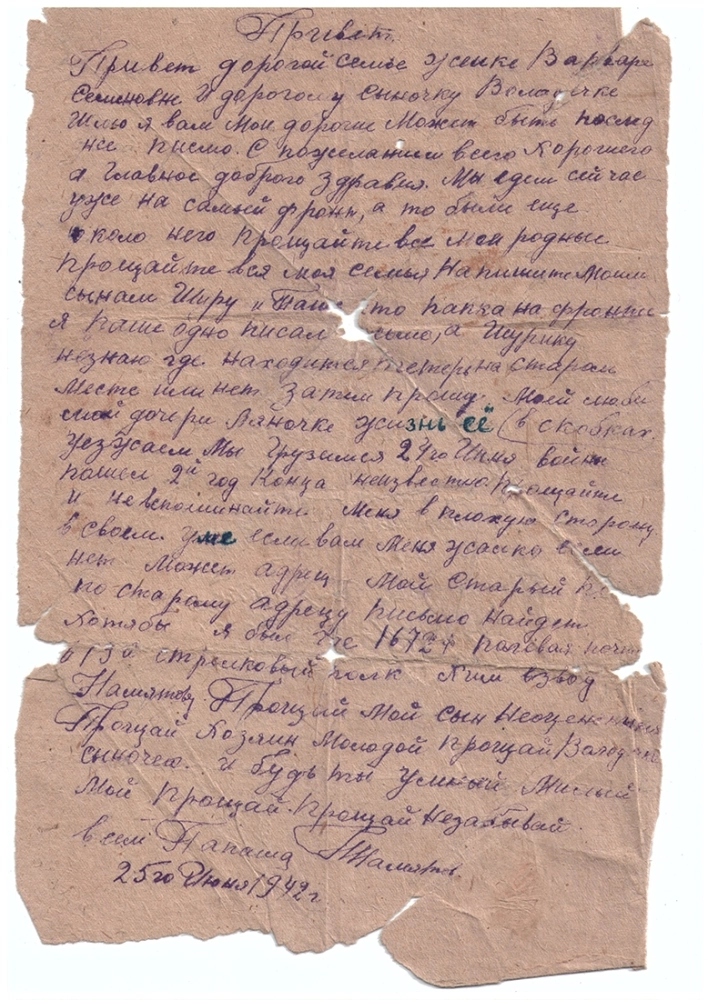 Привет.
Привет дорогой семье женке Варваре
Семеновне И дорогому сыночку Володичке
Шлю я вам мои дорогие Может быть послед
нее писмо. С пожеланием всего хорошего
а Главное доброго здравия. Мы едем сейчас
уже на самый фронт, а то были еще
около него прощайте все мои родные
прощайте вся моя семья Напишите моим
сынам Шуру и то папка на фронте
я раше одно писал а Шурику
незнаю где находится теперь на старом
месте или нет Затем прощу моей люби
мой дочери жизнь её (в скобках.
уезжаем Мы грузимся 24го Июня война
пошел 2й год Конца неизвестно прощайте
и невспоминайте меня в плохую сторону
в своем уме если вам меня жалко если
нет Может адрец мой старый
по старому адрецу письмо найдет
хотябы я был где 1672 полевая почт
стрелковый полк Хим взвод
Намятову Прощий мой сын Неоцененный
Прощай Хозяин Молодой прощай Володичка
сыночек. и будь ты умный Милый
Мой прощай. прощай незабывай
всем Папаша Намятов.
25го Июня 1942г